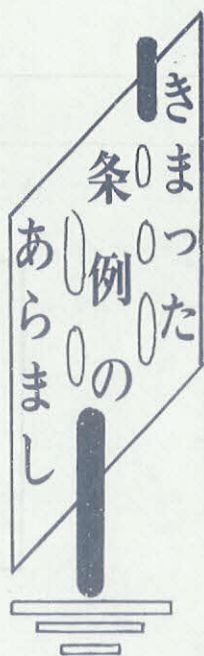 きまった
条例の
あらまし